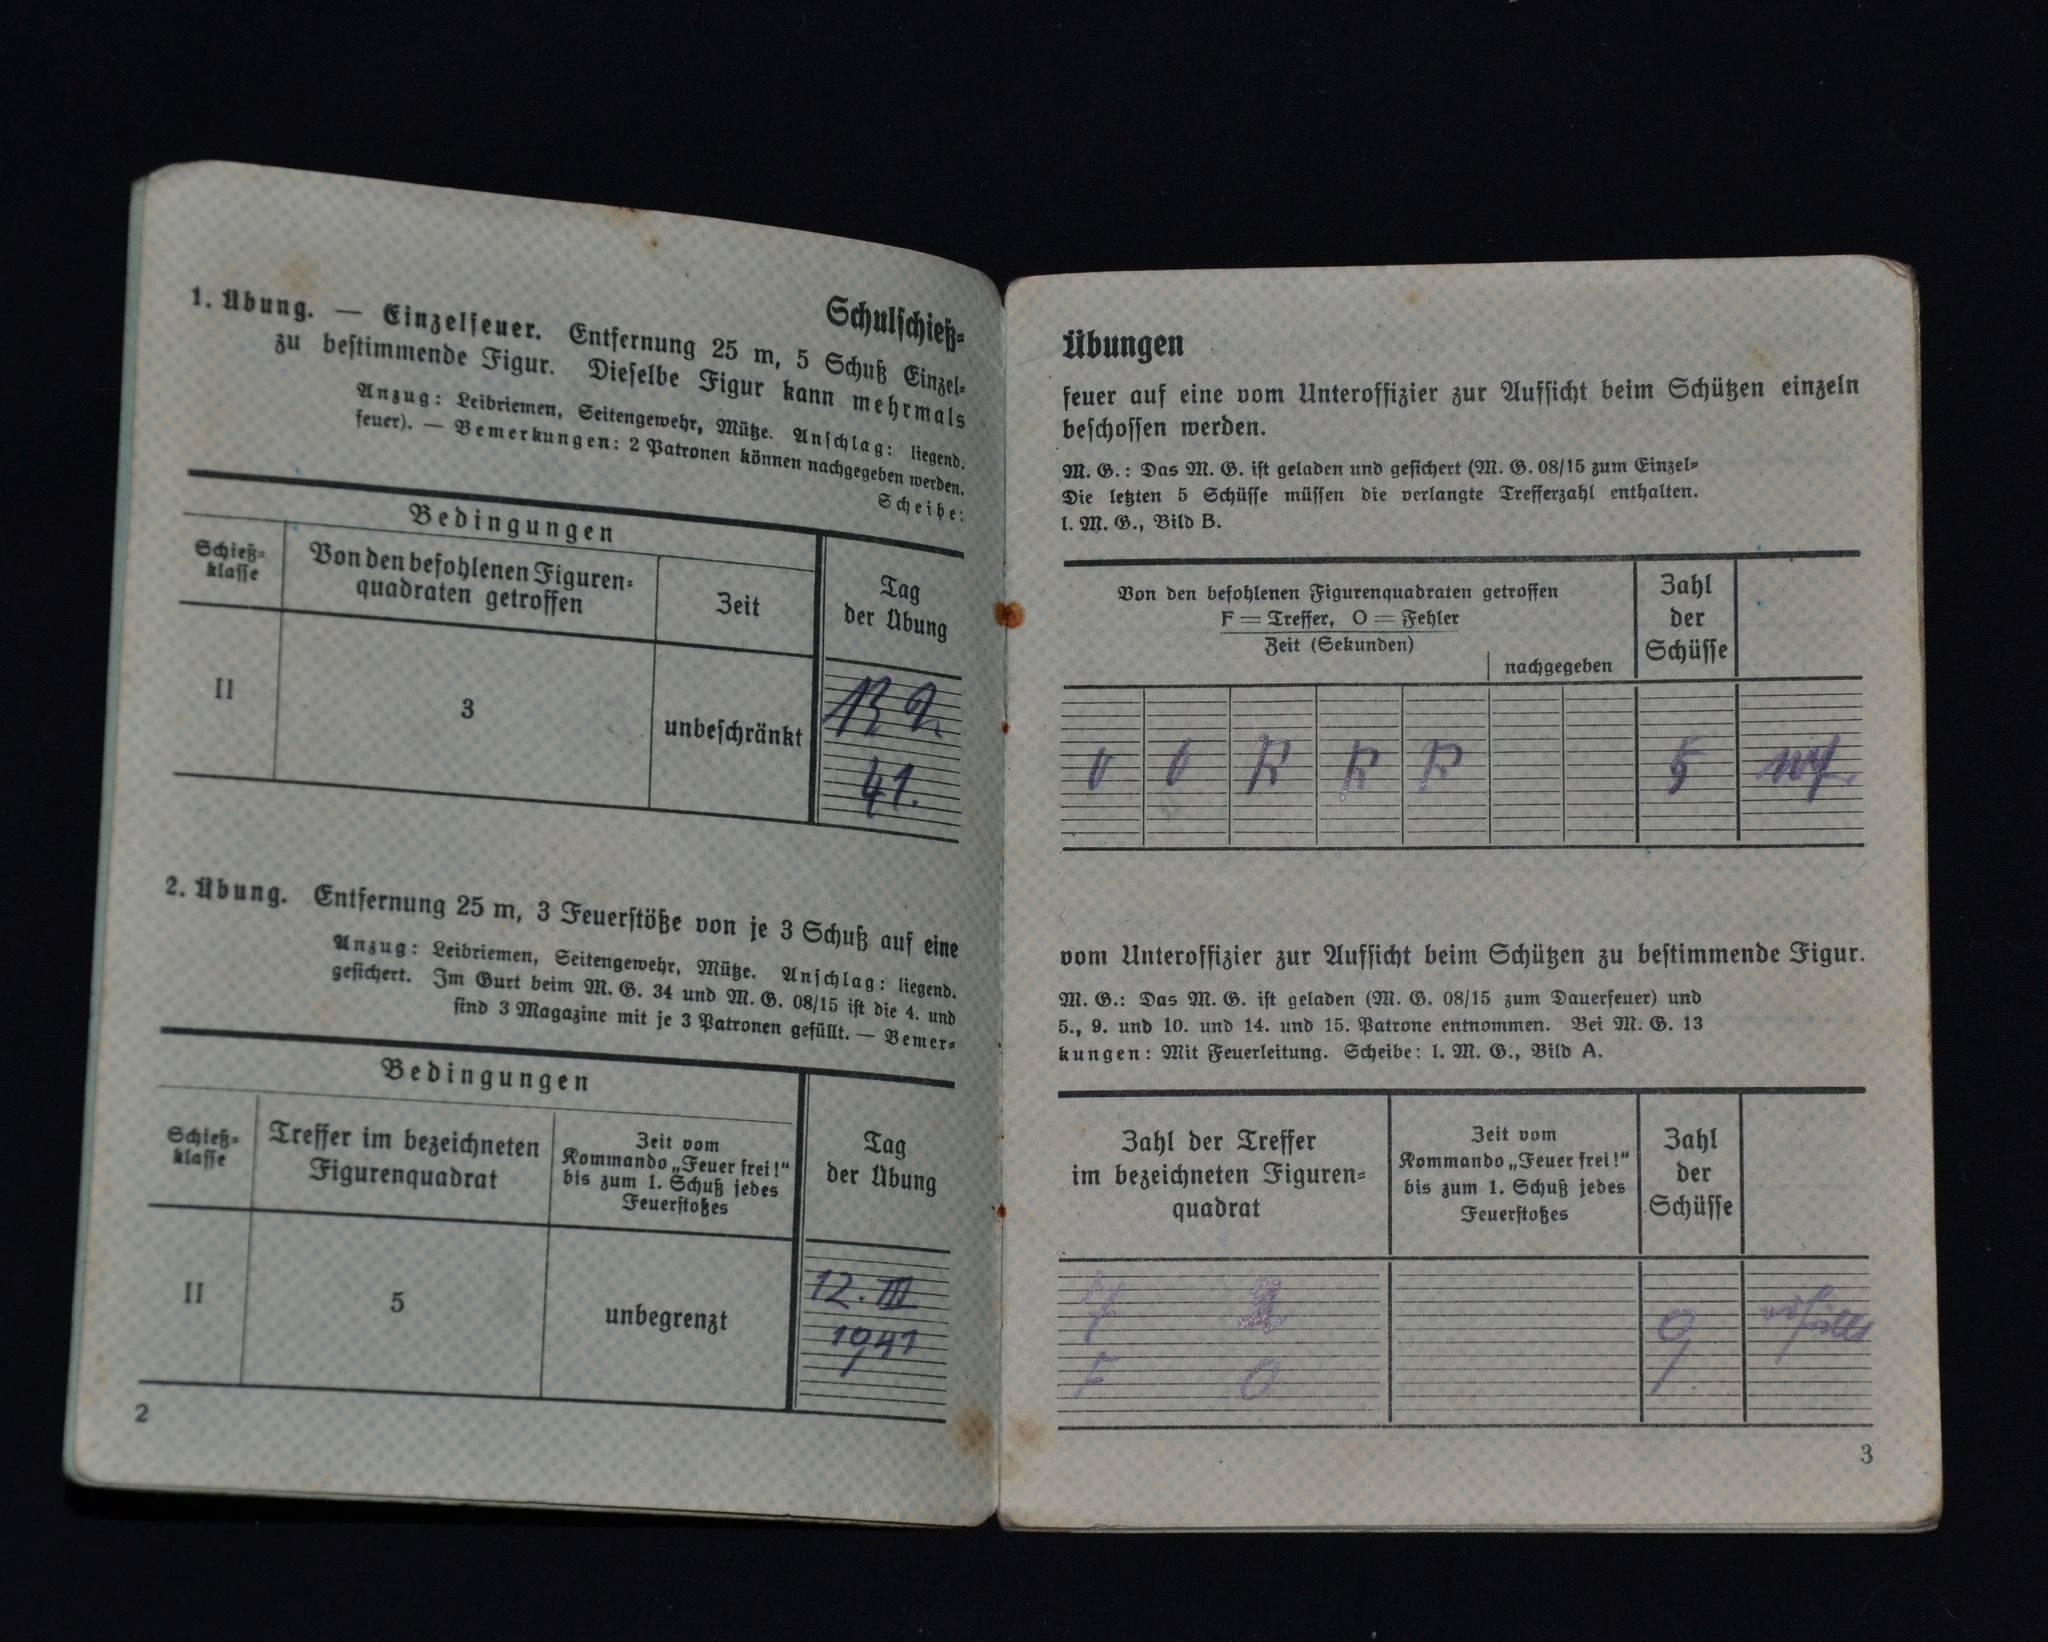 Schulschieß=
1. Übung. — Einzelfeuer. Entfernung 25 m, 5 Schuß Einzel=
zu bestimmende Figur. Dieselbe Figur kann mehrmals
Anzug: Leibriemen, Seitengewehr, Mütze. Anschlag: liegend.
feuer). — Bemerkungen: 2 Patronen können nachgegeben werden.
Scheibe:
Bedingungen
Schieß=
klasse
Von den befohlenen Figuren=
quadraten getroffen
Zeit
Tag
der Übung
II
3
unbeschränkt
13 2.
41.
2. Übung. Entfernung 25 m, 3 Feuerstöße von je 3 Schuß auf eine
Anzug: Leibriemen, Seitengewehr, Mütze. Anschlag: liegend.
gesichert. Im Gurt beim M. G. 34 und M. G. 08/15 ist die 4. und
sind 3 Magazine mit je 3 Patronen gefüllt. — Bemer=
Bedingungen
Schieß=
klasse
Treffer im bezeichneten
Figurenquadrat
Zeit vom
Kommando „Feuer frei!"
bis zum 1. Schuß jedes
Feuerstoßes
Tag
der Übung
II
5
unbegrenzt
12. III
1941
2
Übungen
feuer auf eine vom Unteroffizier zur Aufsicht beim Schützen einzeln
beschossen werden.
M. G.: Das M. G. ist geladen und gesichert (M. G. 08/15 zum Einzel=
Die letzten 5 Schüsse müssen die verlangte Trefferzahl enthalten.
l. M. G., Bild B.
Von den befohlenen Figurenquadraten getroffen
F = Treffer, O = Fehler
Zeit (Sekunden)
nachgegeben
Zahl
der
Schüsse
0 0 F F F 5
vom Unteroffizier zur Aufsicht beim Schützen zu bestimmende Figur.
M. G.: Das M. G. ist geladen (M. G. 08/15 zum Dauerfeuer) und
5., 9. und 10. und 14. und 15. Patrone entnommen. Bei M. G. 13
kungen: Mit Feuerleitung. Scheibe: l. M. G., Bild A.
Zahl der Treffer
im bezeichneten Figuren=
quadrat
Zeit vom
Kommando „Feuer frei!"
bis zum 1. Schuß jedes
Feuerstoßes
Zahl
der
Schüsse
7 2
9
F 0
3